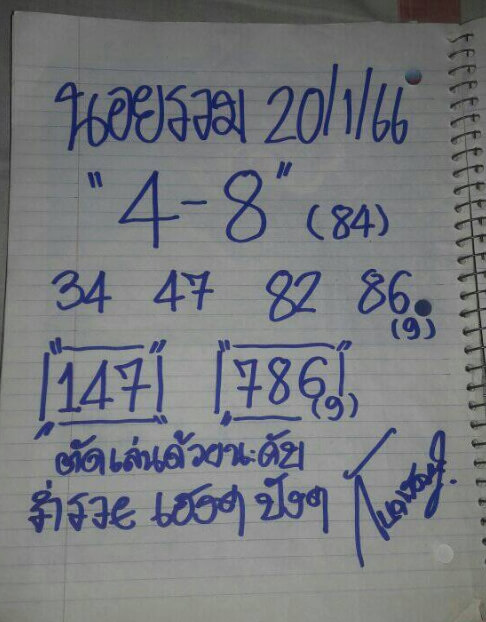 ฮานอยรวม 20/1/66
"4-8" (84)
34 47 82 86
(9)
"147" "786"
(9)
ตัดเล่นด้วยนะคับ
ร่ำรวย เฮงๆ ปังๆ